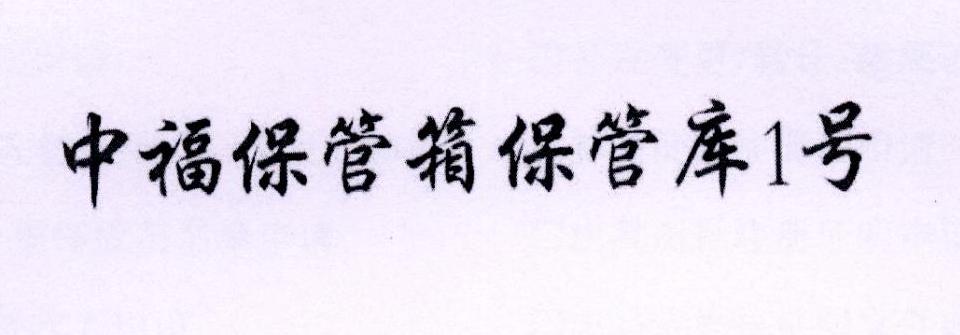 中福保管箱保管库1号